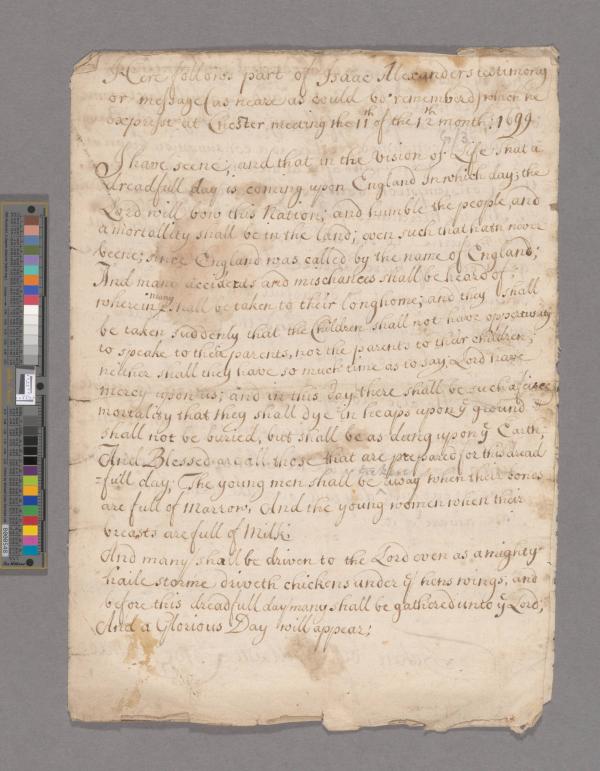 Here follows part of Isaac Alexanders testimony
or message (as neare as could be remembered) which he
exprest at Chester meeting the 11th of the 12th month; 1699
I have seene, and that in the vision of Life that a
dreadfull day is coming upon England In which day; the
Lord will bow this Nation; and humble the people, and
a mortallity shall be in the land; even such that hath never
beene; since England was called by the name of England;
And many accidents and mischances shall be heard of;
wherein many shall be taken to their longhome; and they shall
be taken suddenly that the Children shall not have opportunity
to speake to their parents, nor the parents to their children;
neither shall they have so much time as to say, Lord have
mercy upon us; and in this day there shall be such a
mortality that they shall dye in heaps upon ye ground
shall not be buried, but shall be as dung upon ye Earth;
And Blessed are all those that are prepared for this dread
=full day, The young men shall be away when their bones
are full of marrow, And the young women when their
breasts are full of Milk
And many shall be driven to the Lord even as a mighty
haile storme driveth chickens under ye hens wings; and
before this dreadfull day many shall be gathered unto ye Lord;
And a Glorious Day will appear;